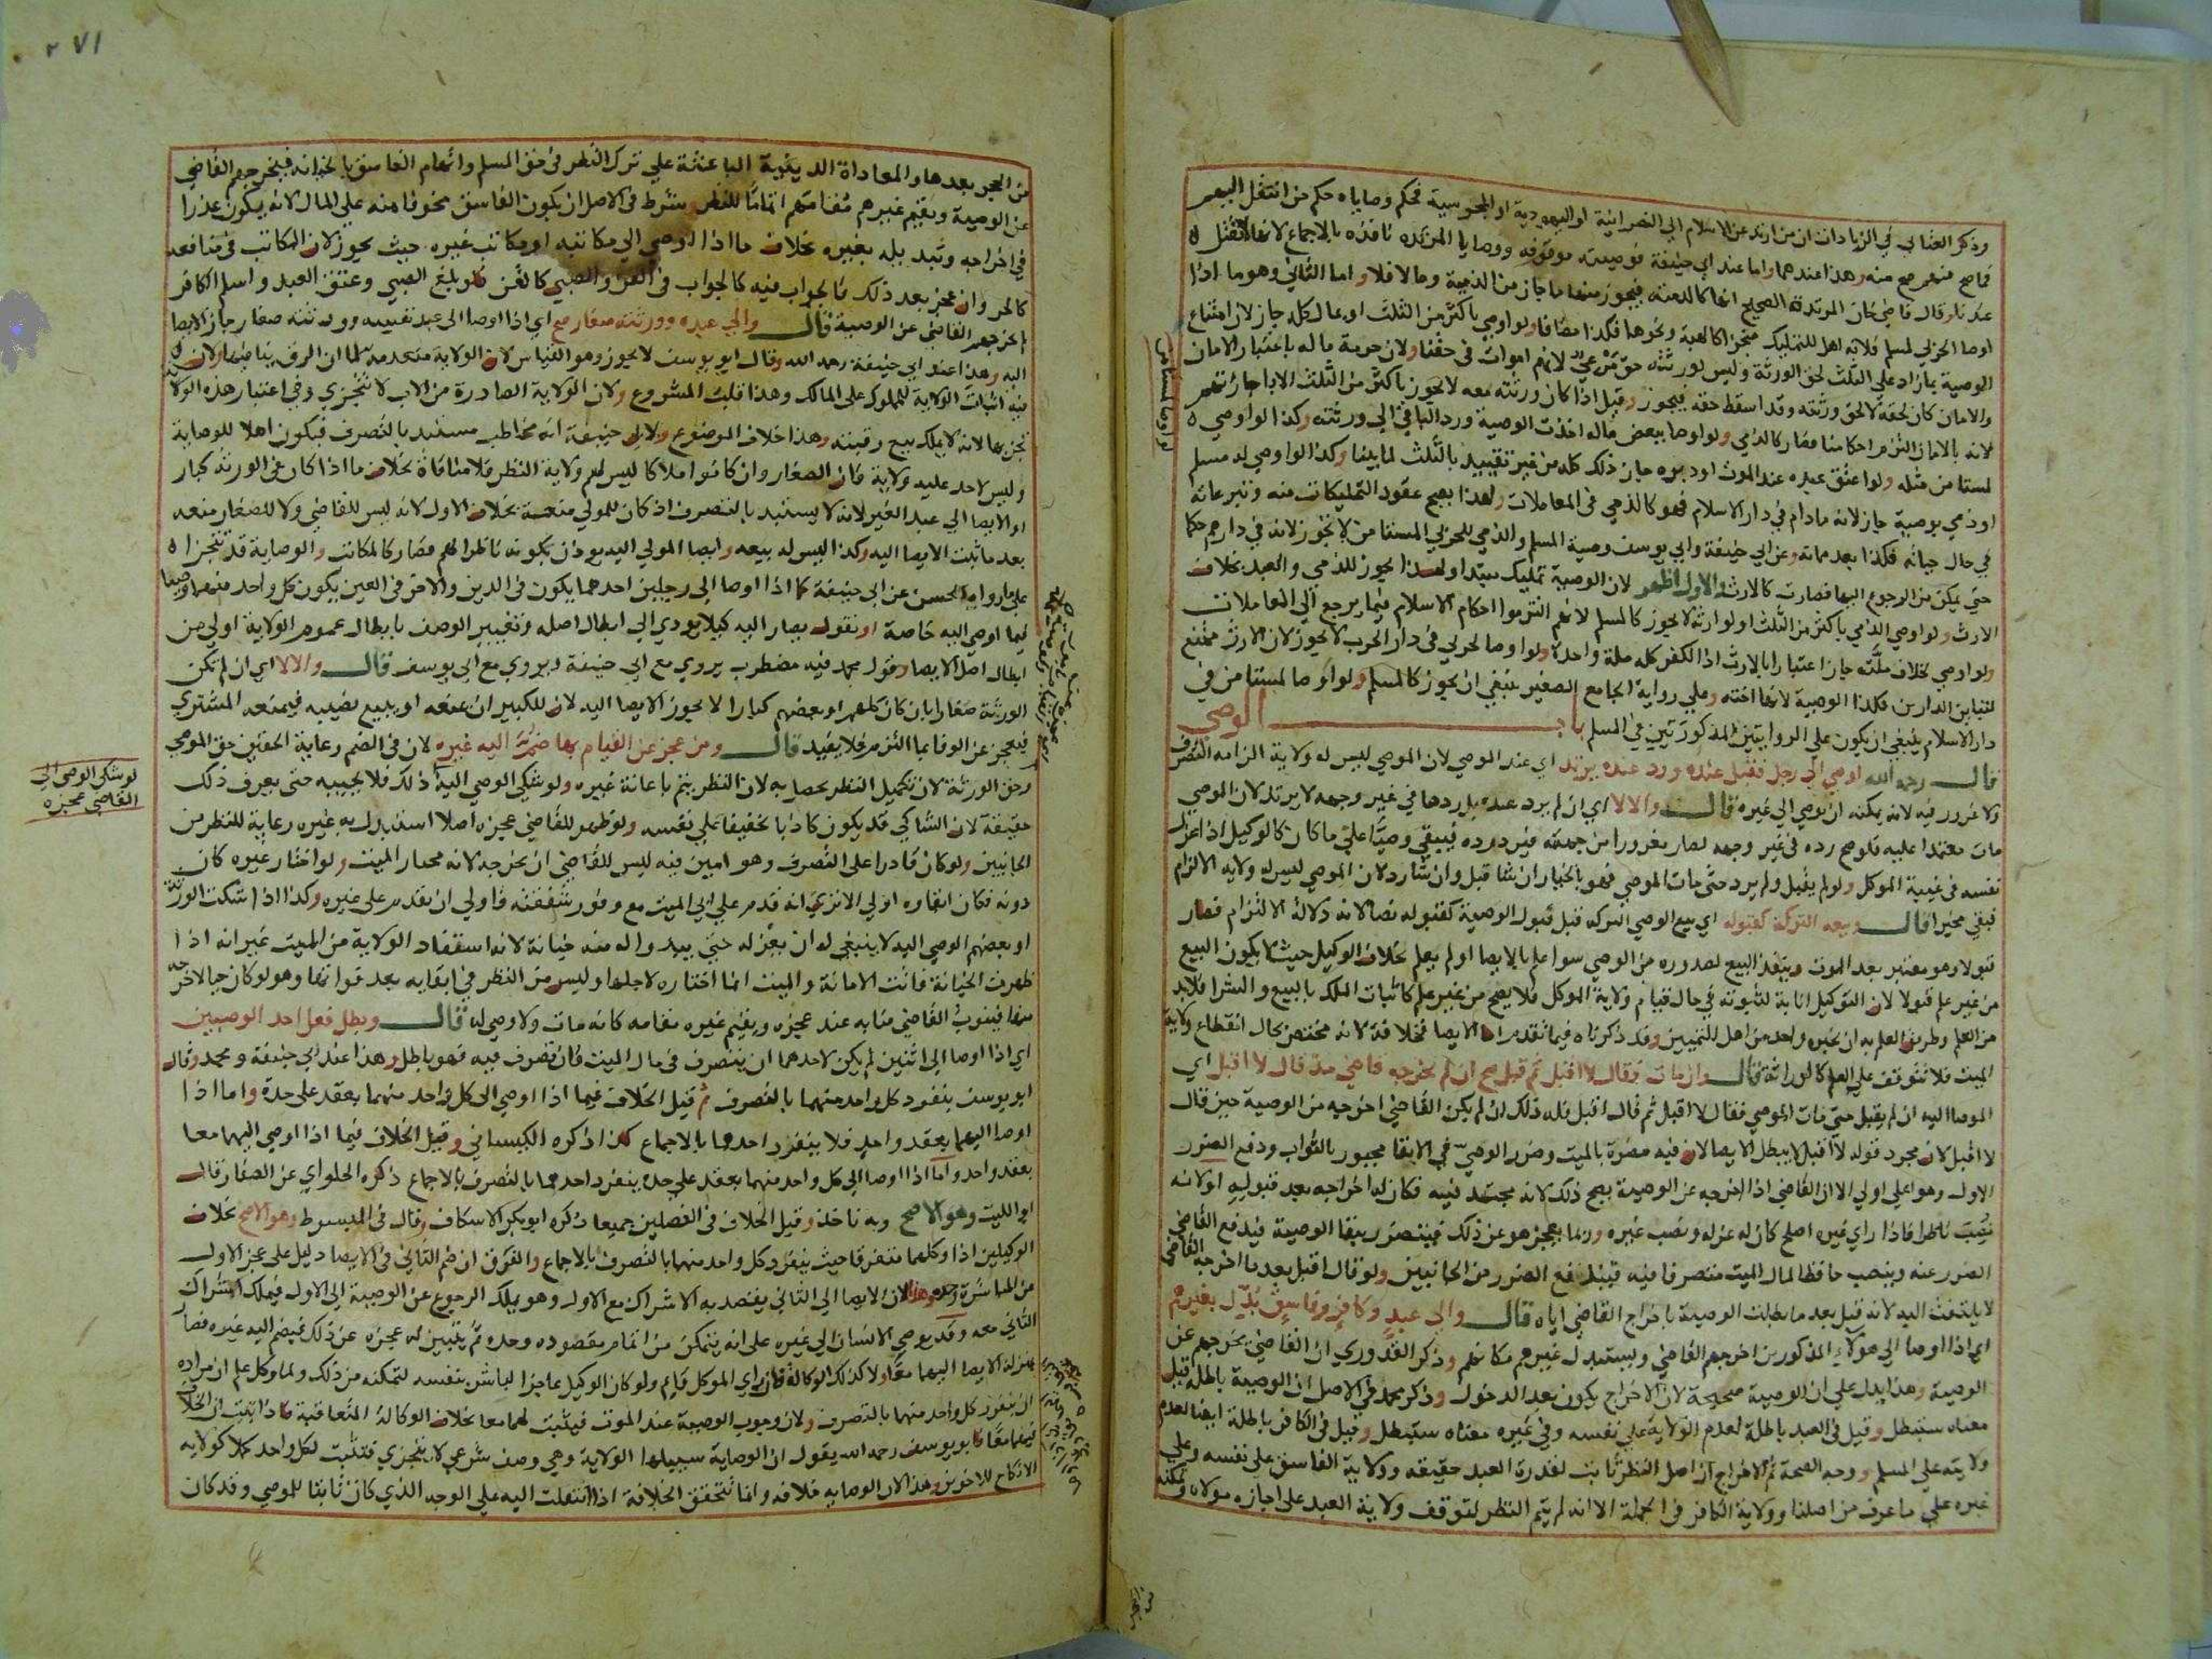 وذكر العتابي في الزيادات ان من ارتد عن الاسلام الى النصرانية او اليهودية او المجوسية فحكم وصاياه حكم من انتقل اليهم
فما صح منهم صح منه وهذا عندهما واما عند ابي حنيفة فوصيته موقوفه ووصايا المرتدة نافذه بالاجماع لانها لا تقتل
عندنا وقال قاضي خان المرتدة الصحيح انها كالذمية فيجوز منها ما جاز من الذمية وما لا فلا واما الثاني وهو ما اذا
اوصا الحربي لمسلم فلانه اهل للتمليك منجزا كالهبة ونحوها فكذا مضافا ولو اوصي باكثر من الثلث او بماله كله جاز لان امتناع
الوصية بما زاد علي الثلث لحق الورثة وليس لورثته حق مرعي لانهم اموات في حقنا ولان حرمة ماله باعتبار الامان
والامان كان لحقه لا لحق ورثته وقد اسقط حقه فيجوز وقيل اذا كان ورثته معه لا يجوز باكثر من الثلث الا باجازتهم
لانه بالامان التزم احكامنا فصار كالذمي ولو اوصا ببعض ماله اخذت الوصية ورد الباقي الي ورثته وكذا لو اوصي
لمستامن مثله ولو اعتق عبده عند الموت او دبره جاز ذلك كله من غير تقييد بالثلث لما بينا وكذا لو اوصي له مسلم
او ذمي بوصية جاز لانه مادام في دار الاسلام فهو كالذمي في المعاملات ولهذا يصح عقود التمليكات منه وتبرعاته
في حال حياته فكذا بعد مماته وعن ابي حنيفة وابي يوسف وصية المسلم والذمي للحربي المستامن لا تجوز لانه في دارهم حكما
حتي يمكن من الرجوع اليها فصارت كالارث والاول اظهر لان الوصية تمليك مبتدا ولهذا يجوز للذمي والعبد بخلاف
الارث ولو اوصي الذمي باكثر من الثلث او لوارثه لا يجوز كالمسلم لانهم التزموا احكام الاسلام فيما يرجع الي المعاملات
ولو اوصي لخلاف ملته جاز اعتبارا بالارث اذ الكفر كله ملة واحدة ولو اوصا لحربي في دار الحرب لا يجوز لان الارث ممتنع
لتباين الدارين فكذا الوصية لانها اخته وعلي رواية الجامع الصغير ينبغي ان يجوز كالمسلم ولو اوصا لمستامن في
دار الاسلام ينبغي ان يكون علي الروايتين المذكورتين في المسلم باب الوصي
قال رحمه الله اوصي الي رجل فقبل عنده ورد عنده يرتد اي عند الموصي لان الموصي ليس له ولاية الزامه التصرف
ولا غرور فيه لانه يمكنه ان يوصي الي غيره قال والا لا اي ان لم يرد عنده بل ردها في غير وجهه لا يرتد لان الموصي
مات معتمدا عليه فلو صح رده في غير وجهه لصار مغرورا من جهته فيرد رده فيبقي وصيا علي ما كان كالوكيل اذا عزل
نفسه في غيبة الموكل ولو لم يقبل ولم يرد حتي مات الموصي فهو بالخيار ان شا قبل وان شا رد لان الموصي ليس له ولايه الالزام
فبقي مخيرا قال وبيعه التركة كقبوله اي بيع الوصي التركه قبل قبول الوصية كقبوله نصا لانه دلالة الالتزام فصار
قبولا وهو معتبر بعد الموت وينفذ البيع لصدوره من الوصي سوا علم بالايصا او لم يعلم بخلاف الوكيل حيث لا يكون البيع
من غير علم قبولا لان التوكيل انابة لثبوته في حال قيام ولاية الموكل فلا يصح من غير علم كاثبات الملك بالبيع والشرا فلا بد
من العلم وطريق العلم به ان يخبره واحد من اهل التمييز وقد ذكرناه فيما تقدم اما الايصا فخلافة لانه مختص بحال انقطاع ولاية
الميت فلا تتوقف علي العلم كالوراثة قال وان مات فقال لا اقبل ثم قبل صح ان لم يخرجه قاضي مذ قال لا اقبل اي
الموصا اليه ان لم يقبل حتي مات الموصي فقال لا اقبل ثم قال اقبل فله ذلك ان لم يكن القاضي اخرجه من الوصية حين قال
لا اقبل لان مجرد قوله لا اقبل لا يبطل الايصا لان فيه مضرة بالميت وضرر الوصي في الابقا مجبور بالثواب ودفع الضرر
الاول وهو اعلي اولي الا ان القاضي اذا اخرجه عن الوصية يصح ذلك لانه مجتهد فيه فكان له اخراجه بعد قبوله اولانه
نصب ناظرا فاذا راي غيره اصلح كان له عزله ونصب غيره وربما يعجز هو عن ذلك فيتضرر ببقا الوصية فيدفع القاضي
الضرر عنه وينصب حافظا لمال الميت متصرفا فيه فيندفع الضرر من الجانبين ولو قال اقبل بعد ما اخرجه القاضي
لا يلتفت اليه لانه قبل بعد ما بطلت الوصية باخراج القاضي اياه قال والي عبد وكافر وفاسق بدل بغيرهم
اي اذا اوصا الي هولاء المذكورين اخرجهم القاضي ويستبدل غيرهم مكانهم وذكر القدوري ان القاضي يخرجهم عن
الوصية وهذا يدل علي ان الوصية صحيحة لان الاخراج يكون بعد الدخول وذكر محمد في الاصل ان الوصية باطلة قيل
معناه ستبطل وقيل في العبد باطلة لعدم الولاية علي نفسه وفي غيره معناه ستبطل وقيل في الكافر باطلة ايضا لعدم
ولايته علي المسلم ووجه الصحة ثم الاخراج ان اصل النظر ثابت لقدرة العبد حقيقه وولاية الفاسق علي نفسه وعلي
غيره علي ما عرف من اصلنا وولاية الكافر في الجملة الا انه لم يتم النظر لتوقف ولاية العبد علي اجازه مولاه وتمكنه
٢٧١
من الحجر بعدها والمعاداة الدينية الباعثة علي ترك النظر في حق المسلم واتهام الفاسق بالخيانه فيخرجهم القاضي
عن الوصية ويقيم غيرهم مقامهم اتماما للنظر وشرط في الاصل ان يكون الفاسق مخوفا منه علي المال لانه يكون عذرا
في اخراجه وتبديله بغيره بخلاف ما اذا اوصي الي مكاتبه او مكاتب غيره حيث يجوز لان المكاتب في منافعه
كالحر وان عجز بعد ذلك فالجواب فيه كالجواب في القن والصبي كالقن فلو بلغ الصبي وعتق العبد واسلم الكافر
لم يخرجهم القاضي عن الوصية قال والي عبده وورثته صغار صح اي اذا اوصا الي عبد نفسه وورثته صغار جاز الايصا
اليه وهذا عند ابي حنيفة رحمه الله وقال ابو يوسف لا يجوز وهو القياس لان الولاية منعدمة لما ان الرق ينافيها ولان
فيه اثبات الولاية للمملوك علي المالك وهذا قلب المشروع ولان الولاية الصادرة من الاب لا تتجزي وفي اعتبار هذه الولاية
تجزيها لانه لا يملك بيع رقبته وهذا خلاف الموضوع ولابي حنيفة انه مخاطب مستبد بالتصرف فيكون اهلا للوصاية
وليس لاحد عليه ولاية فان الصغار وان كانوا ملاكا ليس لهم ولاية النظر فلا منافاة بخلاف ما اذا كان في الورثة كبار
او الايصا الي عبد الغير لانه لا يستبد بالتصرف اذ كان للمولي منعه بخلاف الاول لانه ليس للقاضي ولا للصغار منعه
بعد ما ثبت الايصا اليه وكذا ليس له بيعه وايصا المولي اليه يوذن بكونه ناظرا لهم فصار كالمكاتب والوصاية قد تتجزا
علي ما رواه الحسن عن ابي حنيفة كما اذا اوصا الي رجلين احدهما يكون في الدين والاخر في العين يكون كل واحد منهما وصيا
فيما اوصي اليه خاصة او نقول يصار اليه كيلا يودي الي ابطال اصله وتغيير الوصف بابطال عموم الولاية اولي من
ابطال اصل الايصا وقول محمد فيه مضطرب يروي مع ابي حنيفة ويروي مع ابي يوسف قال والا لا اي ان لم تكن
الورثة صغارا بان كان كلهم او بعضهم كبارا لا يجوز الايصا اليه لان للكبير ان يمنعه او يبيع نصيبه فيمنعه المشتري
فيعجز عن الوفا بما التزم فلا يفيد قال ومن عجز عن القيام بها ضم اليه غيره لان في الضم رعاية الحقين حق الموصي
وحق الورثة لان تكميل النظر يحصل به لان النظر يتم باعانة غيره ولو شكي الوصي اليه ذلك فلا يجيبه حتي يعرف ذلك
حقيقة لان الشاكي قد يكون كاذبا تخفيفا علي نفسه ولو ظهر للقاضي عجزه اصلا استبدل به غيره رعاية للنظر من
الجانبين ولو كان قادرا علي التصرف وهو امين فيه ليس للقاضي ان يخرجه لانه مختار الميت ولو اختار غيره كان
دونه فكان ابقاوه اولي الا تري انه قدم علي ابي الميت مع وفور شفقته فاولي ان يقدم علي غيره وكذا اذا شكت الورثة
او بعضهم الوصي اليه لا ينبغي له ان يعزله حتي يبدو اله منه خيانة لانه استفاد الولاية من الميت غير انه اذا
ظهرت الخيانة فاتت الامانة والميت انما اختاره لاجلها وليس من النظر في ابقايه بعد فواتها وهو لو كان حيا لاخرجه
منها فينوب القاضي منابه عند عجزه ويقيم غيره مقامه كانه مات ولا وصي له قال ويبطل فعل احد الوصيين
اي اذا اوصا الي اثنين لم يكن لاحدهما ان يتصرف في مال الميت فان تصرف فيه فهو باطل وهذا عند ابي حنيفة ومحمد وقال
ابو يوسف ينفرد كل واحد منهما بالتصرف ثم قيل الخلاف فيما اذا اوصي الي كل واحد منهما بعقد علي حدة واما اذا
اوصا اليهما بعقد واحد فلا ينفرد احدهما بالاجماع كذا ذكره الكيساني وقيل الخلاف فيما اذا اوصي اليهما معا
بعقد واحد واما اذا اوصا الي كل واحد منهما بعقد علي حدة ينفرد احدهما بالتصرف بالاجماع ذكره الحلواي عن الصفار قال
ابو الليث وهو الاصح وبه ناخذ وقيل الخلاف في الفصلين جميعا ذكره ابو بكر الاسكاف وقال في المبسوط وهو الاصح بخلاف
الوكيلين اذا وكلهما متفرقا حيث ينفرد كل واحد منهما بالتصرف بالاجماع والفرق ان ضم الثاني في الايصا دليل علي عجز الاول
من المباشرة وحده وهذا لان الايصا الي الثاني يقصد به الاشراك مع الاول وهو يملك الرجوع عن الوصية الي الاول فيملك اشراك
الثاني معه وقد يوصي الانسان الي غيره علي انه يتمكن من اتمام مقصوده وحده ثم يتبين له عجزه عن ذلك فيضم اليه غيره فصار
بمنزلة الايصا اليهما معا ولا كذلك الوكالة فان راي الموكل قايم ولو كان الوكيل عاجزا لباشر بنفسه لتمكنه من ذلك ولما وكل علم ان مراده
ان ينفرد كل واحد منهما بالتصرف ولان وجوب الوصية عند الموت فيثبت لهما معا بخلاف الوكالة المتعاقبة فاذا ثبت ان الخلاف
فيهما معا فابو يوسف رحمه الله يقول ان الوصاية سبيلها الولاية وهي وصف شرعي لا تتجزي فتثبت لكل واحد كملا كولايه
الانكاح للاخوين وهذا لان الوصايه خلافه وانما تتحقق الخلافة اذا انتقلت اليه علي الوجه الذي كان ثابتا للموصي وقد كان
لو شكي الوصي الي
القاضي عجزه